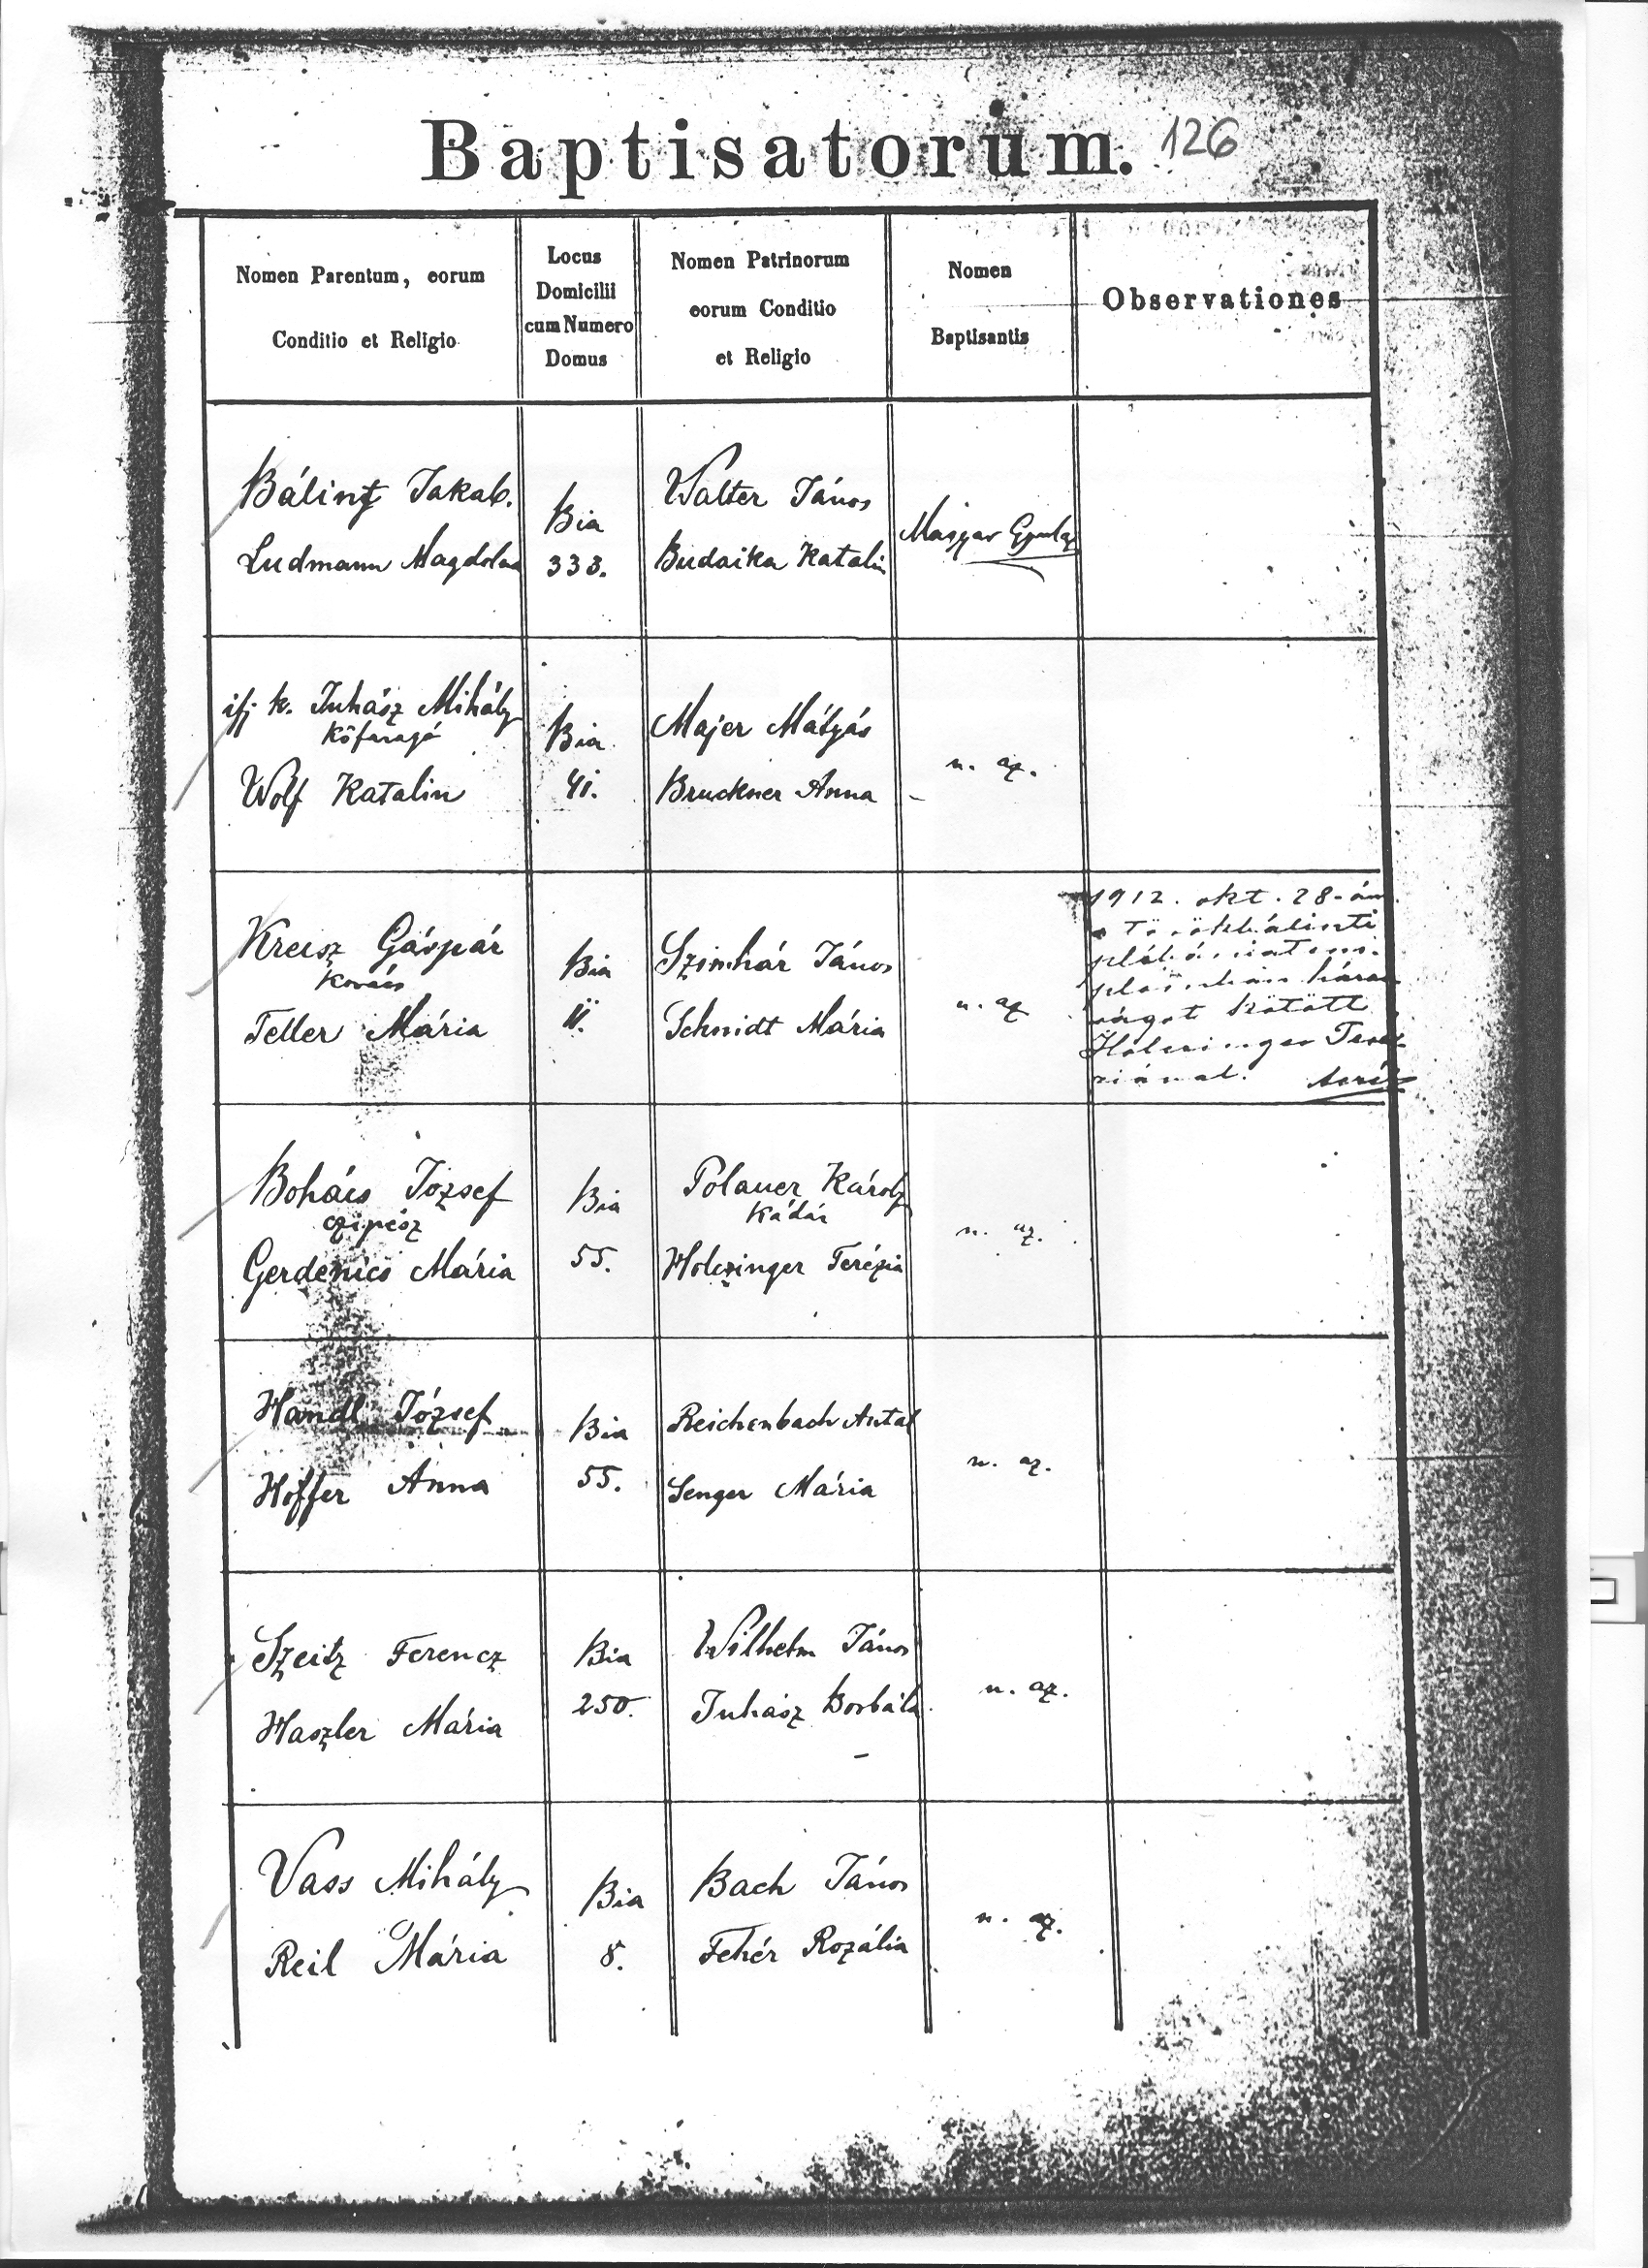 Baptisatorum. 126
Nomen Parentum, eorum
Conditio et Religio
Locus
Domicilii
cum Numero
Domus
Nomen Patrinorum
eorum Conditio
et Religio
Nomen
Baptisantis
Observationes
Bálint Jakab.
Ludmann Magdolna
Bia
333.
Walter János
Budaika Katalin
Magyar Gyula
ifj k. Juhász Mihály
kőfaragó
Wolf Katalin
Bia
41.
Majer Mátyás
Bruckner Anna
u. az.
Kreisz Gáspár
kovács
Teller Mária
Bia
11.
Szimhár János
Schmidt Mária
u. az
1912. okt. 28-án
a Törökbálinti
plébániatem-
plomban háza-
ságot kötött
Holczinger Teré-
ziával.
Bohács József
czipész
Gerdenics Mária
Bia
55.
Polauer Károly
kádár
Holczinger Terézia
u. az.
Handl József
Hoffer Anna
Bia
55.
Reichenbach Antal
Senger Mária
u. az.
Szeitz Ferencz
Haszler Mária
Bia
250.
Wilhelm János
Juhász Borbála
u. az.
Vass Mihály
Reil Mária
Bia
8.
Bach János
Fehér Rozália
u. az.